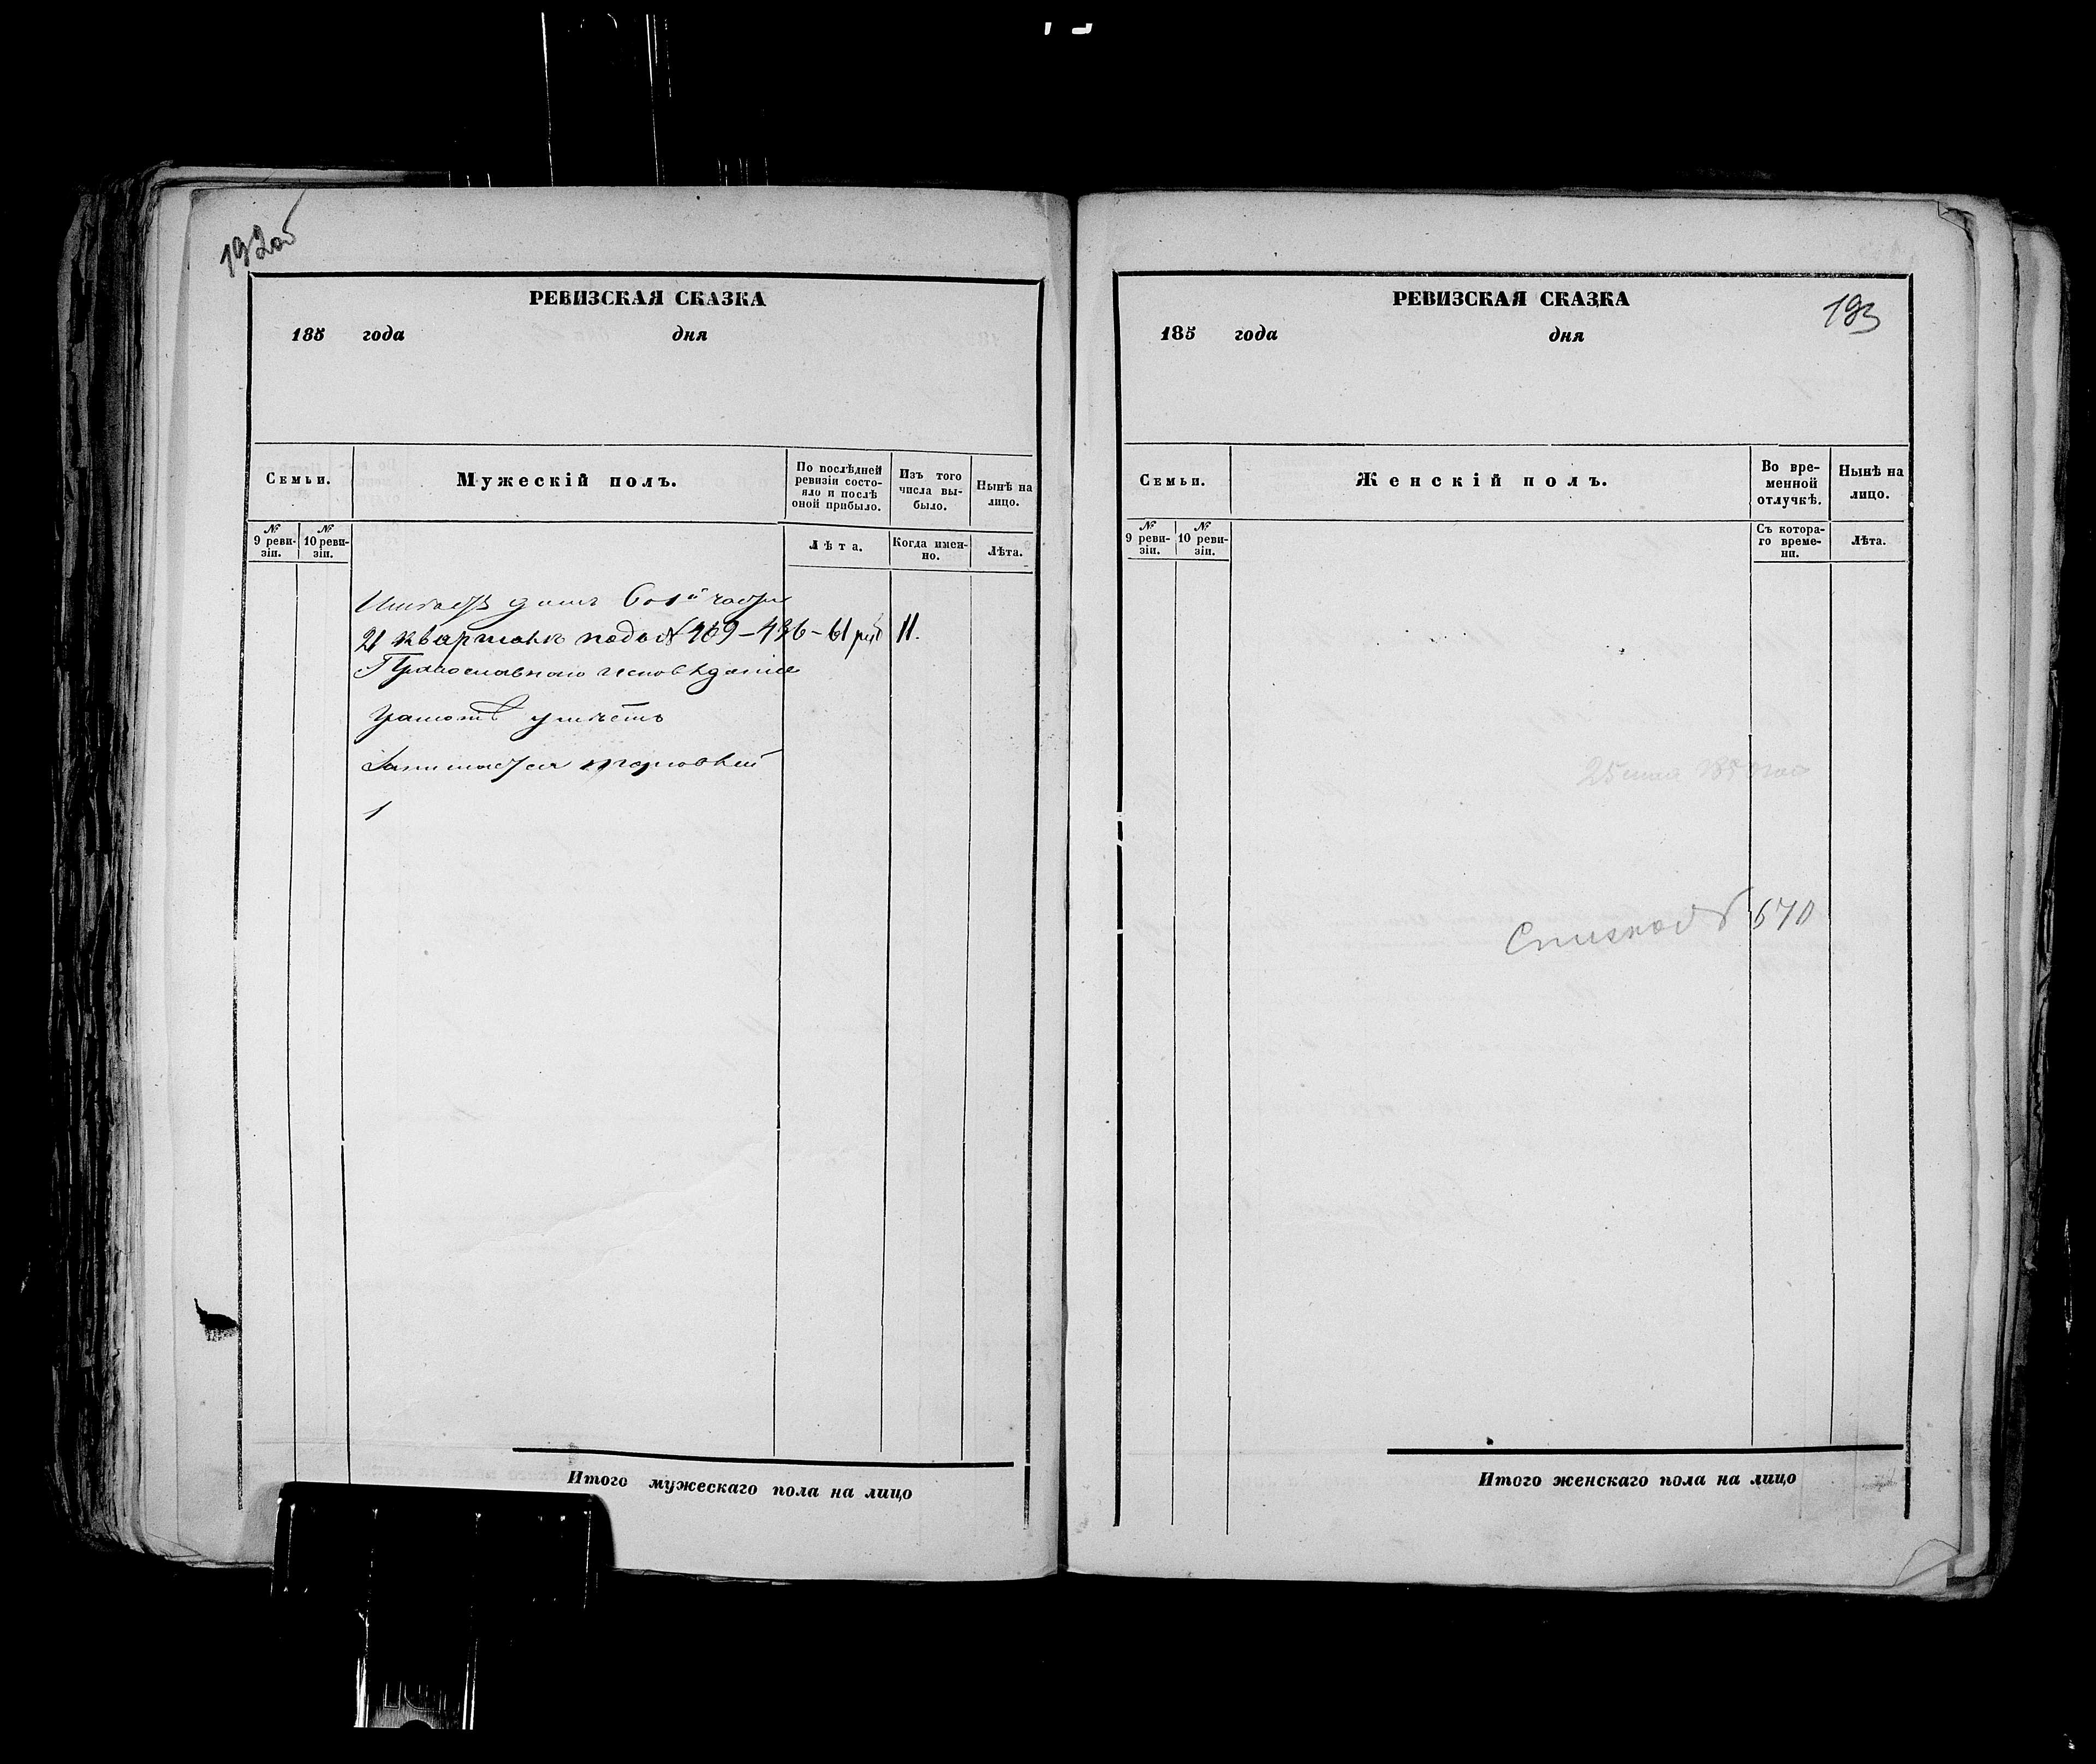 192об
РЕВИЗСКАЯ СКАЗКА
185 года дня
Семьи.
Мужескій полъ.
По послѣдней ревизіи состо-
яло и послѣ оной прибыло.
Изъ того числа вы-
было.
Нынѣ на лицо.
№ 9 реви-
зіи.
№ 10 реви-
зіи.
Лѣта.
Когда имен-
но.
Лѣта.
Имѣетъ домъ 6ой части
21 квартала подъ № 409–436–61 руб 11.
Православнаго исповѣданія
Грамотѣ умѣетъ
Занимается торговлей
1
Итого мужескаго пола на лицо
193
РЕВИЗСКАЯ СКАЗКА
185 года дня
Семьи.
Женскій полъ.
Во вре-
менной
отлучкѣ.
Нынѣ на
лицо.
№ 9 реви-
зіи.
№ 10 реви-
зіи.
Съ котора-
го време-
ни.
Лѣта.
25 мая 185
№ 670
Итого женскаго пола на лицо